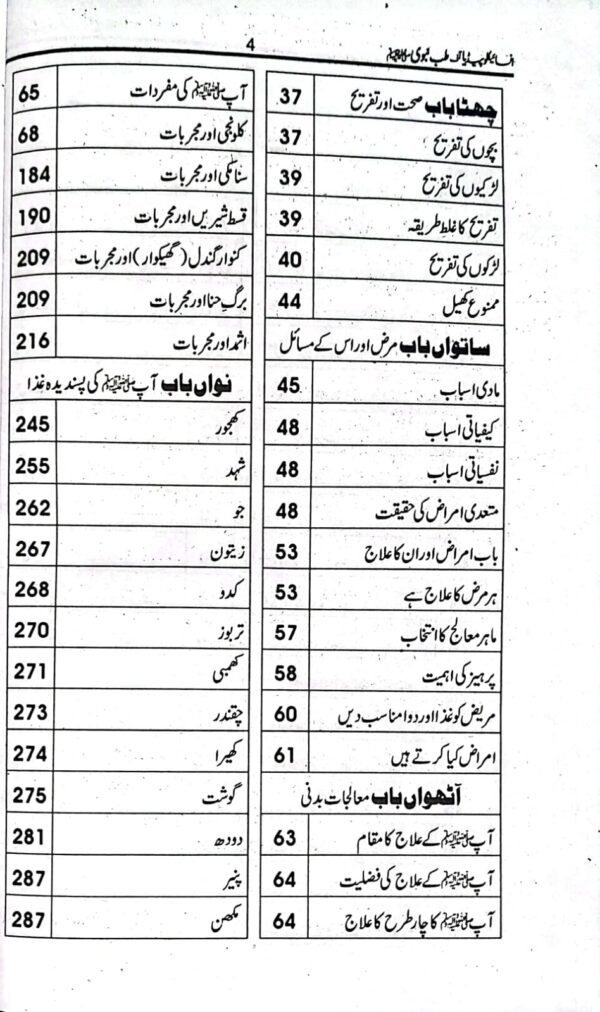 انسائیکلوپیڈیا آف طب نبوی ﷺ 4
چھٹا باب صحت اور تفریح 37
بچوں کی تفریح 37
لڑکیوں کی تفریح 39
تفریح کا غلط طریقہ 39
لڑکوں کی تفریح 40
ممنوع کھیل 44
ساتواں باب مرض اور اس کے مسائل
مادی اسباب 45
کیفیاتی اسباب 48
نفسیاتی اسباب 48
متعدی امراض کی حقیقت 48
باب امراض اور ان کا علاج 53
ہر مرض کا علاج ہے 53
ماہر معالج کا انتخاب 57
پرہیز کی اہمیت 58
مریض کو غذا اور دوا مناسب دیں 60
امراض کیا کرتے ہیں 61
آٹھواں باب معالجات بدنی
آپ ﷺ کے علاج کا مقام 63
آپ ﷺ کے علاج کی فضلیت 64
آپ ﷺ کا چار طرح کا علاج 64
آپ ﷺ کی مفردات 65
کلونجی اور مجربات 68
سنا مکی اور مجربات 184
قسط شیریں اور مجربات 190
کنوار گندل (گھیکوار) اور مجربات 209
برگ حنا اور مجربات 209
اثمد اور مجربات 216
نواں باب آپ ﷺ کی پسندیدہ غذا
کھجور 245
شہد 255
جو 262
زیتون 267
کدو 268
تربوز 270
کھمبی 271
چقندر 273
کھیرا 274
گوشت 275
دودھ 281
پنیر 287
مکھن 287